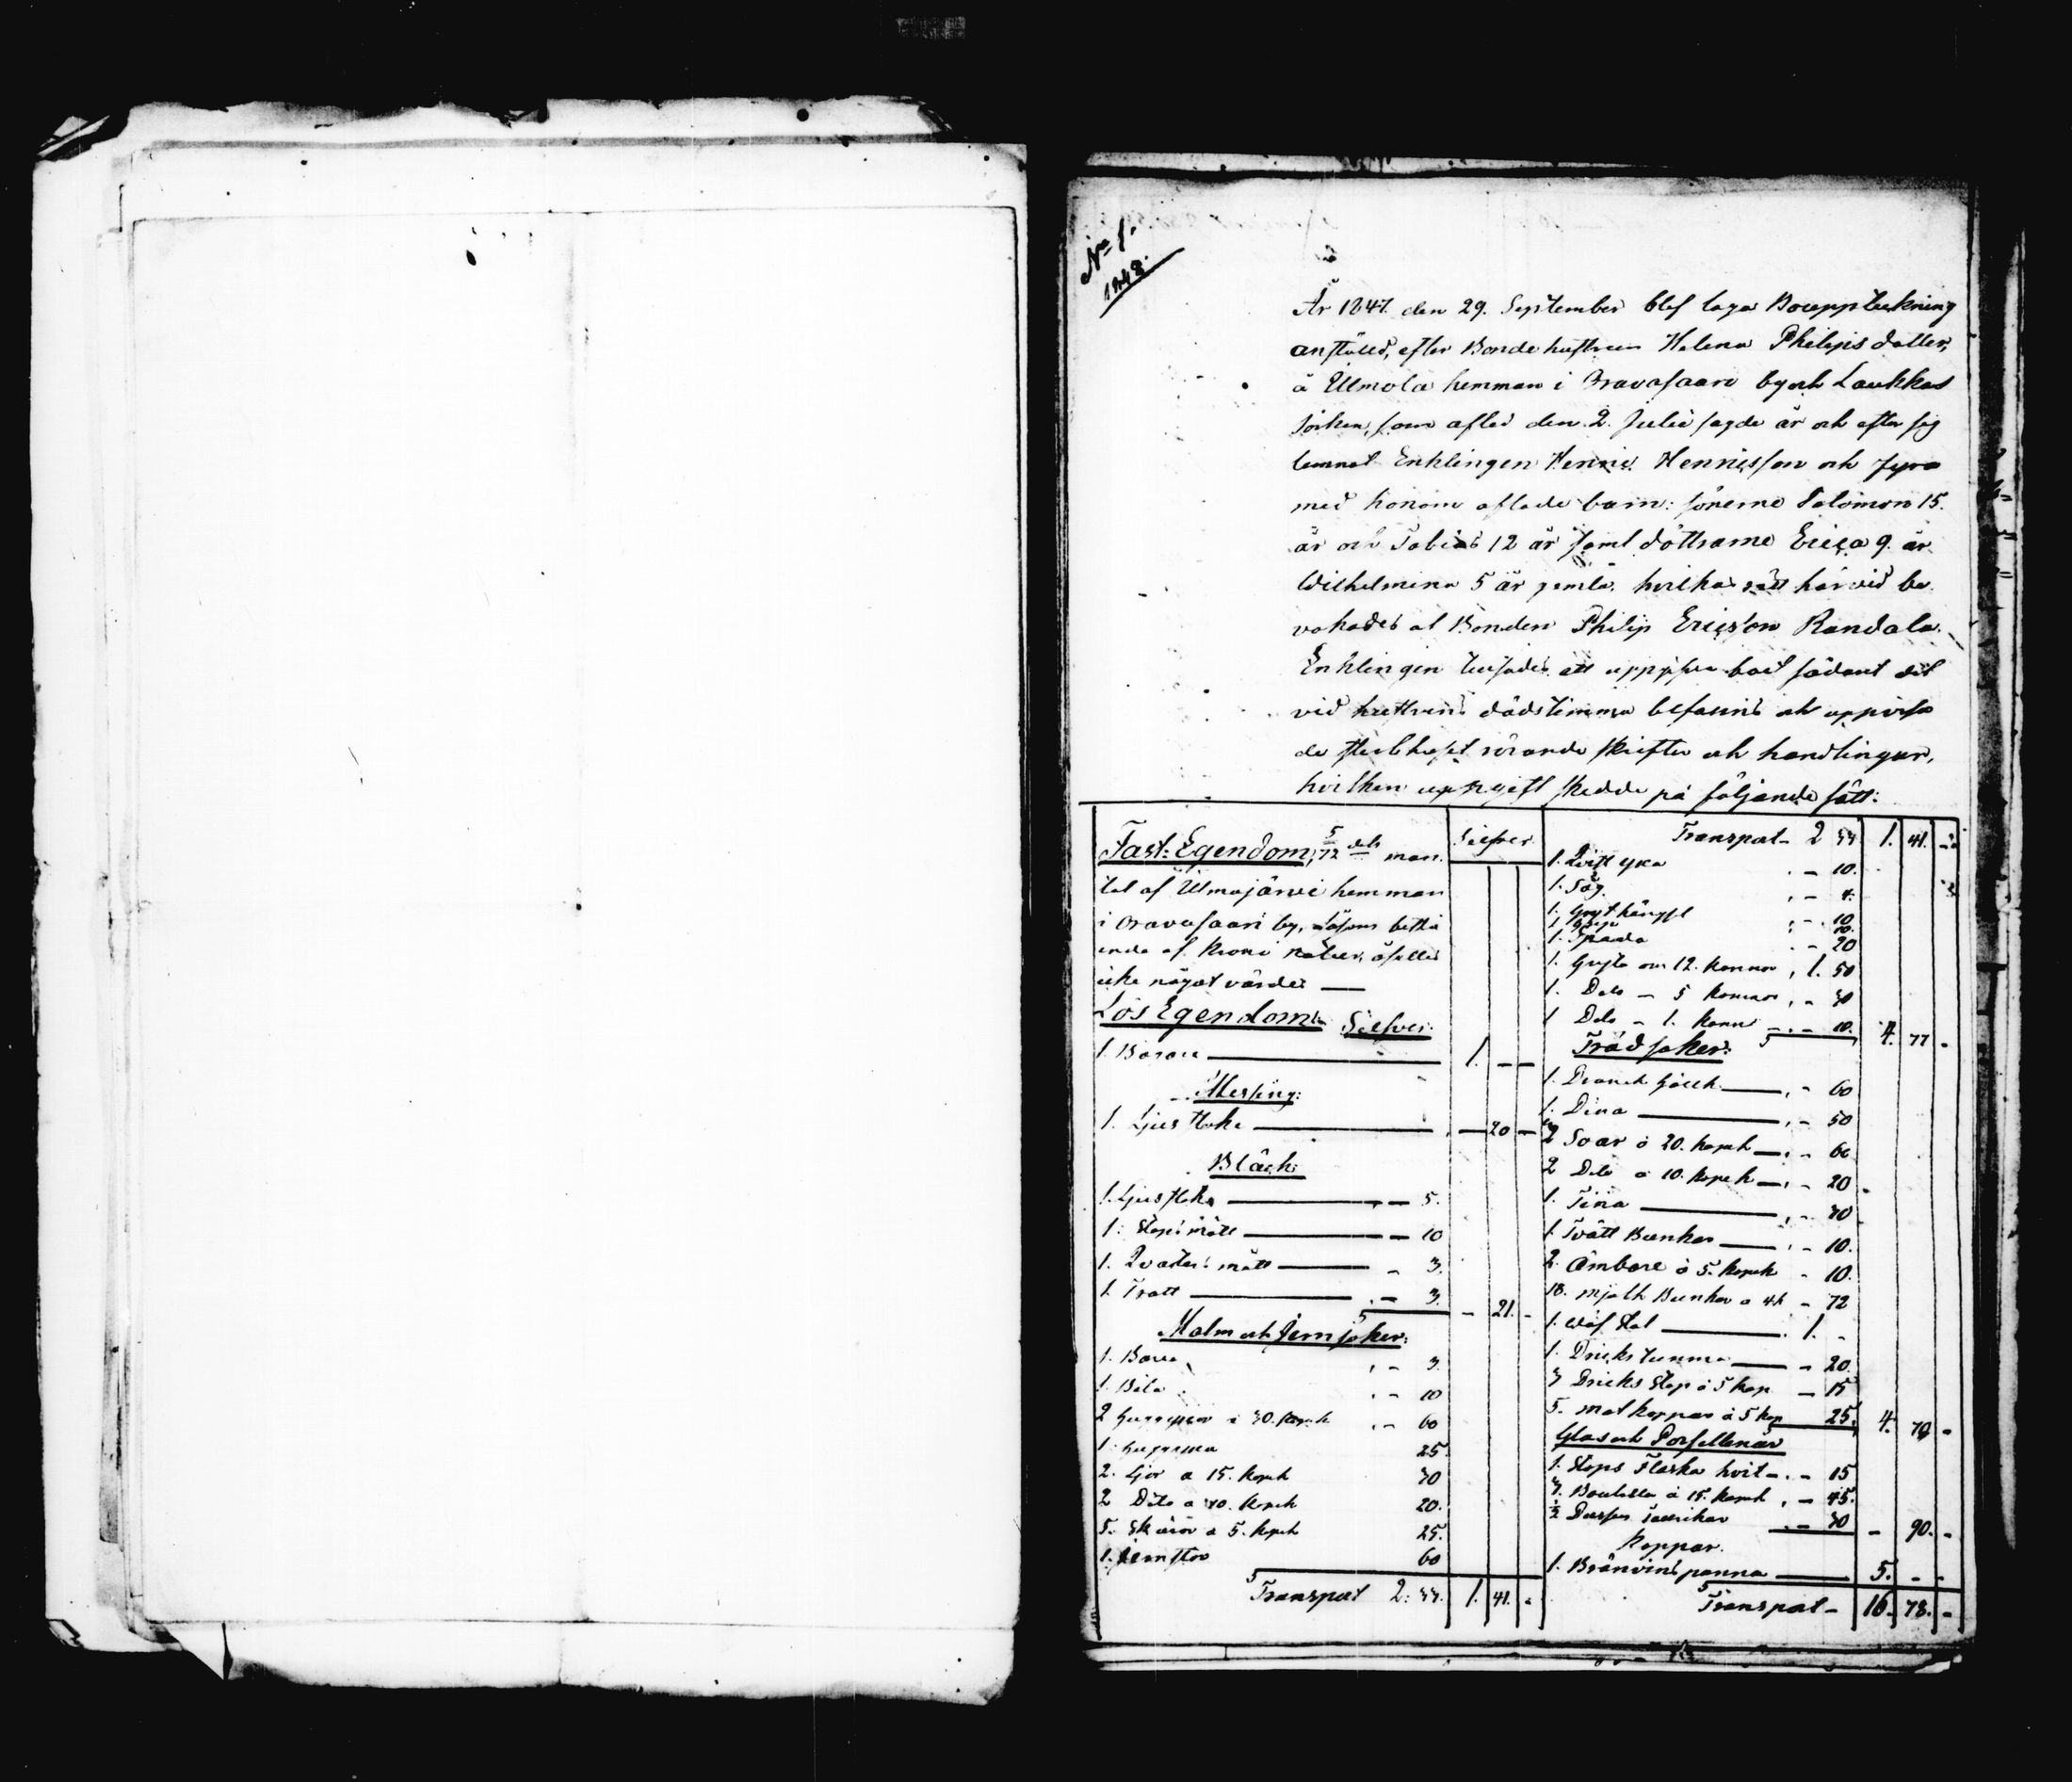 No 1.
1848.
År 1847. den 29. September blef laga Bouppteckning
anstäld, efter Bondehustrun Helena Philips dotter,
å Ulmola hemman i Oravasaari by och Laukkas
Socken, som afled den 2. Julii sagde år och efter sig
lemnat Enklingen Henric Henricsson och fyra
med honom aflade barn: sönerne Salomon 15.
år och Tobias 12 år samt döttrarne Erica 9. år
Wilhelmina 5 år gamla, hvilkas rätt härvid be
vakades af Bonden Philip Ericsson Randala.
Enklingen tillsades att uppgifva boet sådant det
vid hustruns dödstimma befanns och uppvisa
de sterbhuset rörande skrifter och handlingar,
hvilken uppgift skedde på följande sätt:
Fast Egendom, 5/72 dels man
tal af Ulmajärvi hemman
i Oravasaari by, såsom bestå
ende af Krono natur, åsattes
icke något värde —
Lös Egendom Silfver.
1. Bägare — 1. — —
Messing:
1. Ljusstake — 20 —
Bläck:
1. Ljusstake — 5.
1. Stops mått — 10
1. Qvarters mått — 3.
1. Tratt — 3. — 21. -
Malm och Jernsaker:
1. Bårra - 3.
1. Bila - 10
2 Huggyxor a 30. Kopek - 60
1. Huggyxa 25.
2. Ljor a 15. Kopek 30
2 Dito a 10. Kopek 20.
5. Skäror a 5. Kopek 25.
1. Jernstör 60
Transport 2. 33. 1. 41. -
Silfver
Transport - 2 33 1. 41. -
1. Qvist yxa - 10.
1. Såg - 4.
1. Grythängsel - 10
1 - 10.
1. Spada - 20
1. Gryta om 12. Kannor 1. 50
1. Dito - 5 Kannor - 30
1 Dito - 1. Kanna - 10. 4. 77 -
Trädsaker:
1. - 60
1. - 50
2 Såar à 30. Kopek - 60
2 Dito a 10. Kopek - 20
1. Tina - 30
1. Tvätt Bunke - 10.
2. Ämbare à 5. Kopek - 10.
18. Mjölk Bunkar a 4 k - 72
1. Wäfstol 1. -
1. Dricks tunna - 20.
3 Dricks Stop à 5 Kop - 15
5. matkoppar à 5 Kop 25. 4. 72 -
Glas och Porsellener
1. Stops Flaska hvit - 15
3. Boutella à 15. Kopek - 45.
1/2 Dussin Tallrikar - 30 - 90. -
Koppar.
1. Brännvins panna — 5. - -
Transport - 16. 78. -